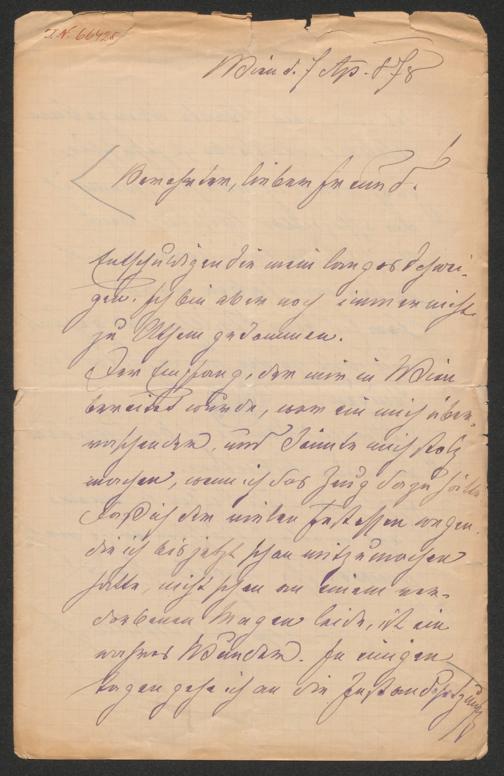 I.N. 66425
Wien d. 7 Ap. 878
Verehrter, lieber Freund!
Entschuldigen Sie mein langes Schwei-
gen. Ich bin aber noch immer nicht
zu Athem gekommen.
Der Empfang, der mir in Wien
bereitet wurde, war ein mich über-
raschender, und könnte mich stolz
machen, wenn ich das Zeug dazu hätte.
Daß ich der vielen Festessen wegen,
die ich bis jetzt schon mitzumachen
hatte, nicht schon an einem ver-
dorbenen Magen leide, ist ein
wahres Wunder. In einigen
Tagen gehe ich an die Instandsetzung